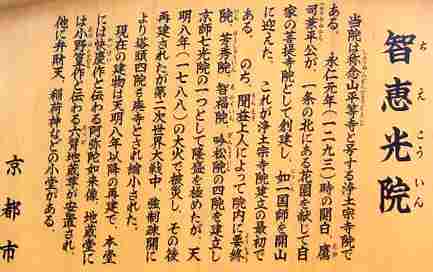 智恵光院
ちえこういん
当院は称念山平等寺と号する浄土宗寺院で
ある。
永仁元年(一二九三)時の関白、鷹
司兼平公が、一条の北にある花園を献じて自
家の菩提寺院として創建し、如一国師を開山
に迎えた。これが浄土宗寺院建立の最初で
ある。のち、聞益上人によって院内に要終
院、菩等院、智福院、吟松院の四院を建立し
京師七光院の一つとして隆盛を極めたが、天
明八年(一七八八)の大火で類災し、その後
再建されたが第二次世界大戦中、強制疎開に
より塔頭四院を廃寺とされ縮小された。
現在の建物は天明八年以降の再建で、本堂
には快慶作と伝わる阿弥陀如来像、地蔵堂に
は小野篁作と伝わる六臂地蔵尊が安置され、
他に弁財天、稲荷神などの小堂がある。
京都市